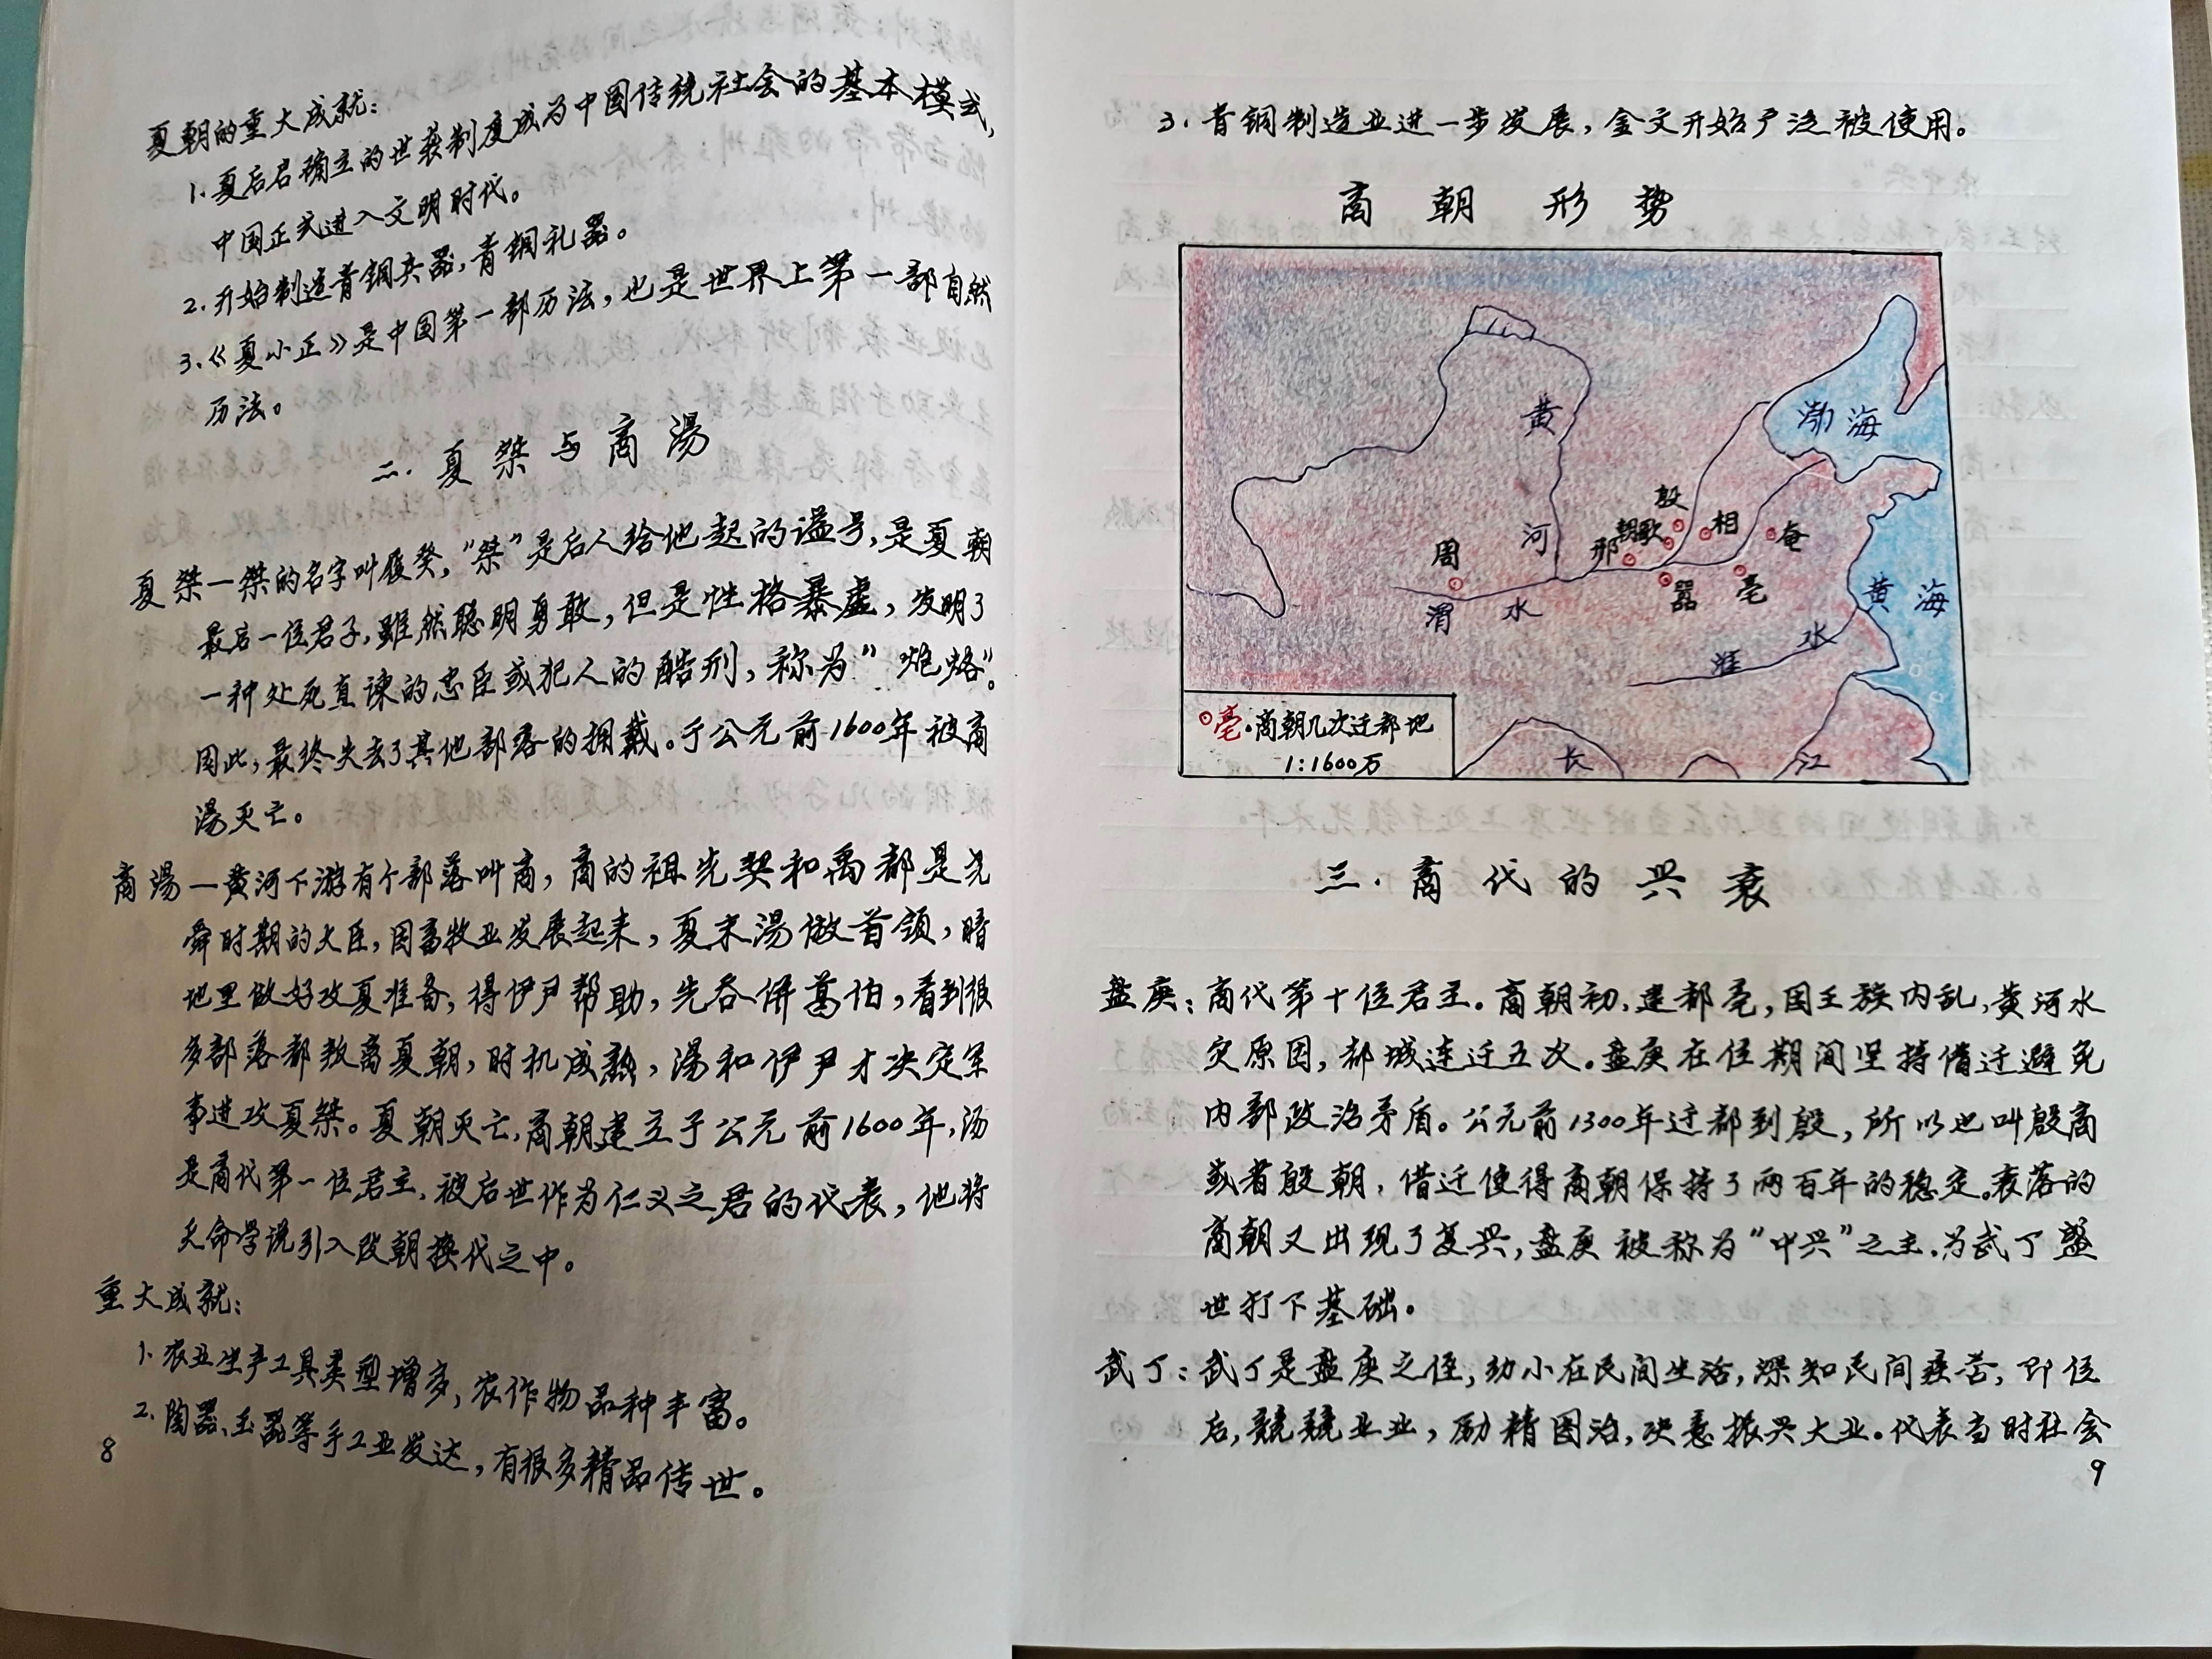 夏朝的重大成就：
1.夏后启确立的世袭制度成为中国传统社会的基本模式，
中国正式进入文明时代。
2.开始制造青铜兵器，青铜礼器。
3.《夏小正》是中国第一部历法，也是世界上第一部自然
历法。
二.夏桀与商湯
夏桀—桀的名字叫履癸，“桀”是后人给他起的谥号，是夏朝
最后一位君子，雖然聪明勇敢，但是性格暴虐，发明了
一种处死直谏的忠臣或犯人的酷刑，称为“炮烙”。
因此，最终失去了其他部落的拥戴。于公元前1600年被商
湯灭亡。
商湯—黄河下游有个部落叫商，商的祖先契和禹都是尧
舜时期的大臣，因畜牧业发展起来，夏末湯做首领，暗
地里做好攻夏准备，得伊尹帮助，先吞併葛伯，看到很
多部落都叛离夏朝，时机成熟，湯和伊尹才决定军
事进攻夏桀。夏朝灭亡，商朝建立于公元前1600年，汤
是商代第一位君主，被后世作为仁义之君的代表，他将
天命学说引入改朝换代之中。
重大成就：
1.农业生产工具类型增多，农作物品种丰富。
2.陶器、玉器等手工业发达，有很多精品传世。
8
3.青铜制造业进一步发展，金文开始广泛被使用。
商朝形势
渤海
黄
河
殷
朝歌
相
邢
奄
周
嚣
亳
渭水
黄海
淮水
亳·商朝几次迁都地
1:1600万
长江
三.商代的兴衰
盘庚：商代第十位君王。商朝初，建都亳，因王族内乱，黄河水
灾原因，都城连迁五次。盘庚在位期间坚持借迁避免
内部政治矛盾。公元前1300年迁都到殷，所以也叫殷商
或者殷朝，借迁使得商朝保持了两百年的稳定。衰落的
商朝又出现了复兴，盘庚被称为“中兴”之主，为武丁盛
世打下基础。
武丁：武丁是盘庚之侄，幼小在民间生活，深知民间疾苦，即位
后，兢兢业业，励精图治，决意振兴大业。代表当时社会
9